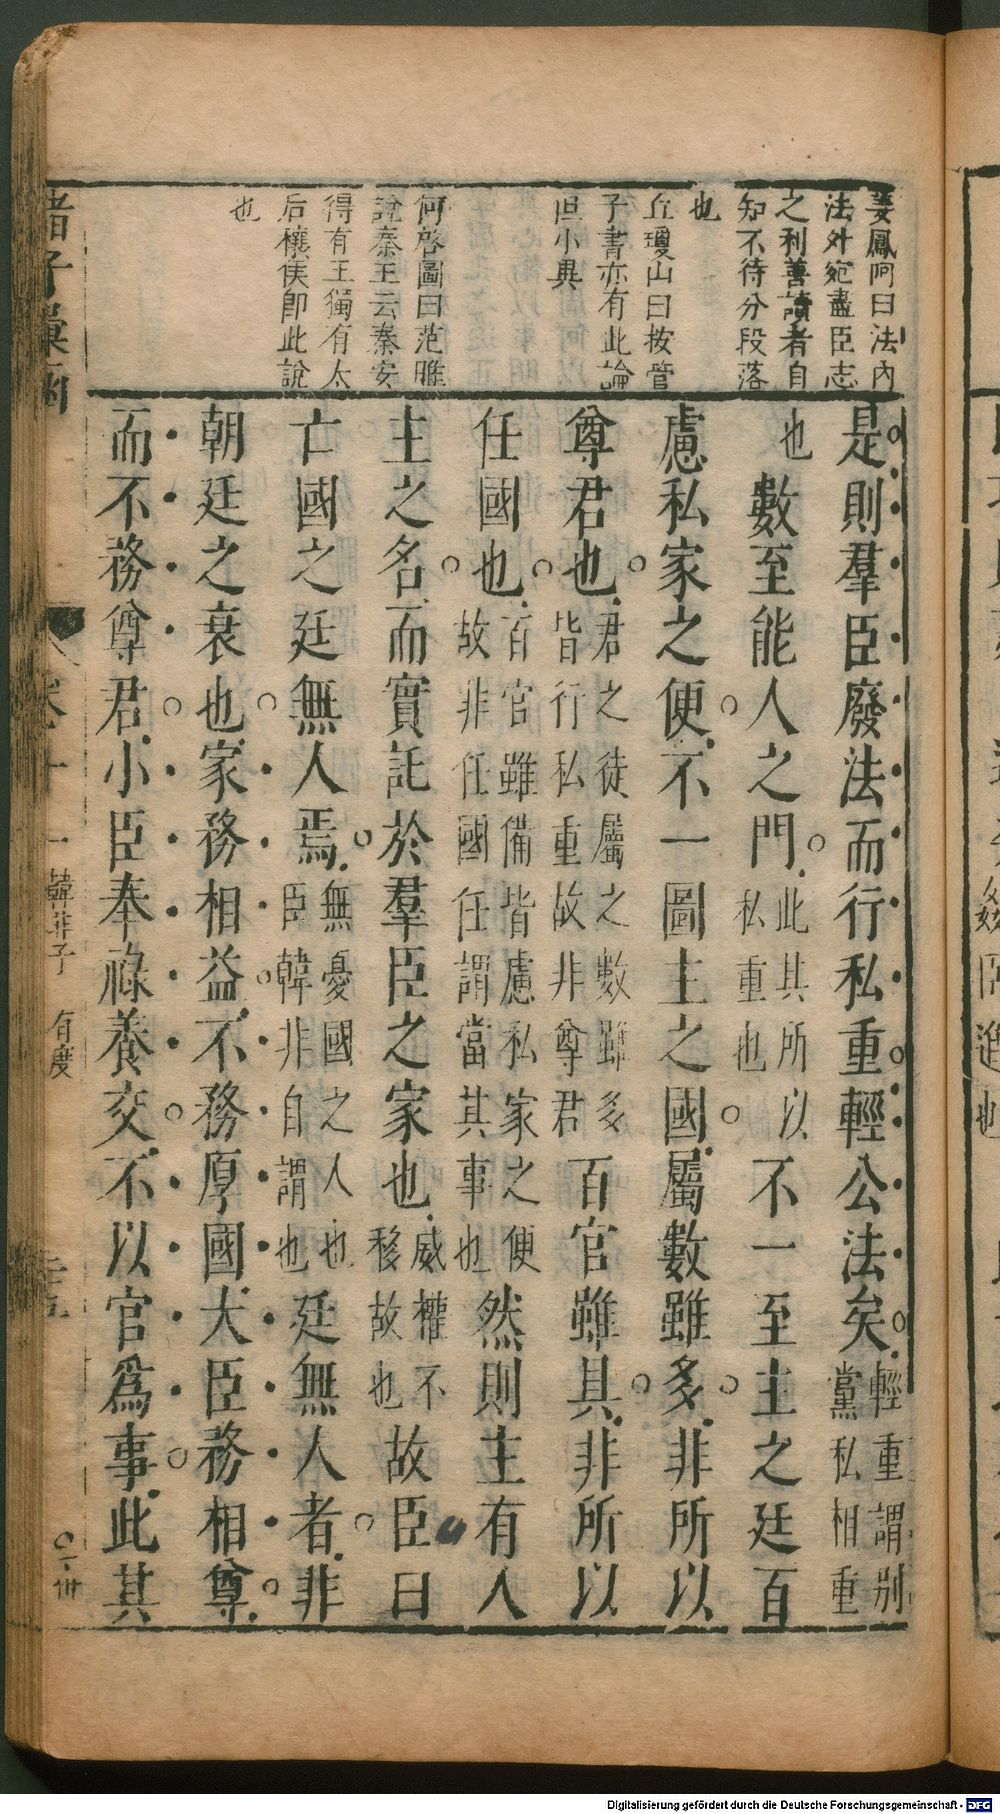 姜鳳阿曰法內
法外宛盡臣志
之利善讀者自
知不待分段落
也
丘瓊山曰按管
子書亦有此論
但小異
何啓圖曰范雎
說秦王云秦安
得有王獨有太
后穰侯卽此說
也
是則羣臣廢法而行私重輕公法矣輕重謂別黨私相重
也數至能人之門此其所以私重也不一至主之廷百
慮私家之便不一圖主之國屬數雖多非所以
尊君也君之徒屬之數雖多皆行私重故非尊君百官雖具非所以
任國也百官雖備皆慮私家之便故非任國任謂當其事也然則主有人
主之名而實託於羣臣之家也威權不移故也故臣曰
亡國之廷無人焉無憂國之人也臣韓非自謂也廷無人者非
朝廷之衰也家務相益不務厚國大臣務相尊
而不務尊君小臣奉祿養交不以官爲事此其
諸子彙函
卷十一
韓非子
有度
二五
姦臣進也
Digitalisierung gefördert durch die Deutsche Forschungsgemeinschaft - DFG